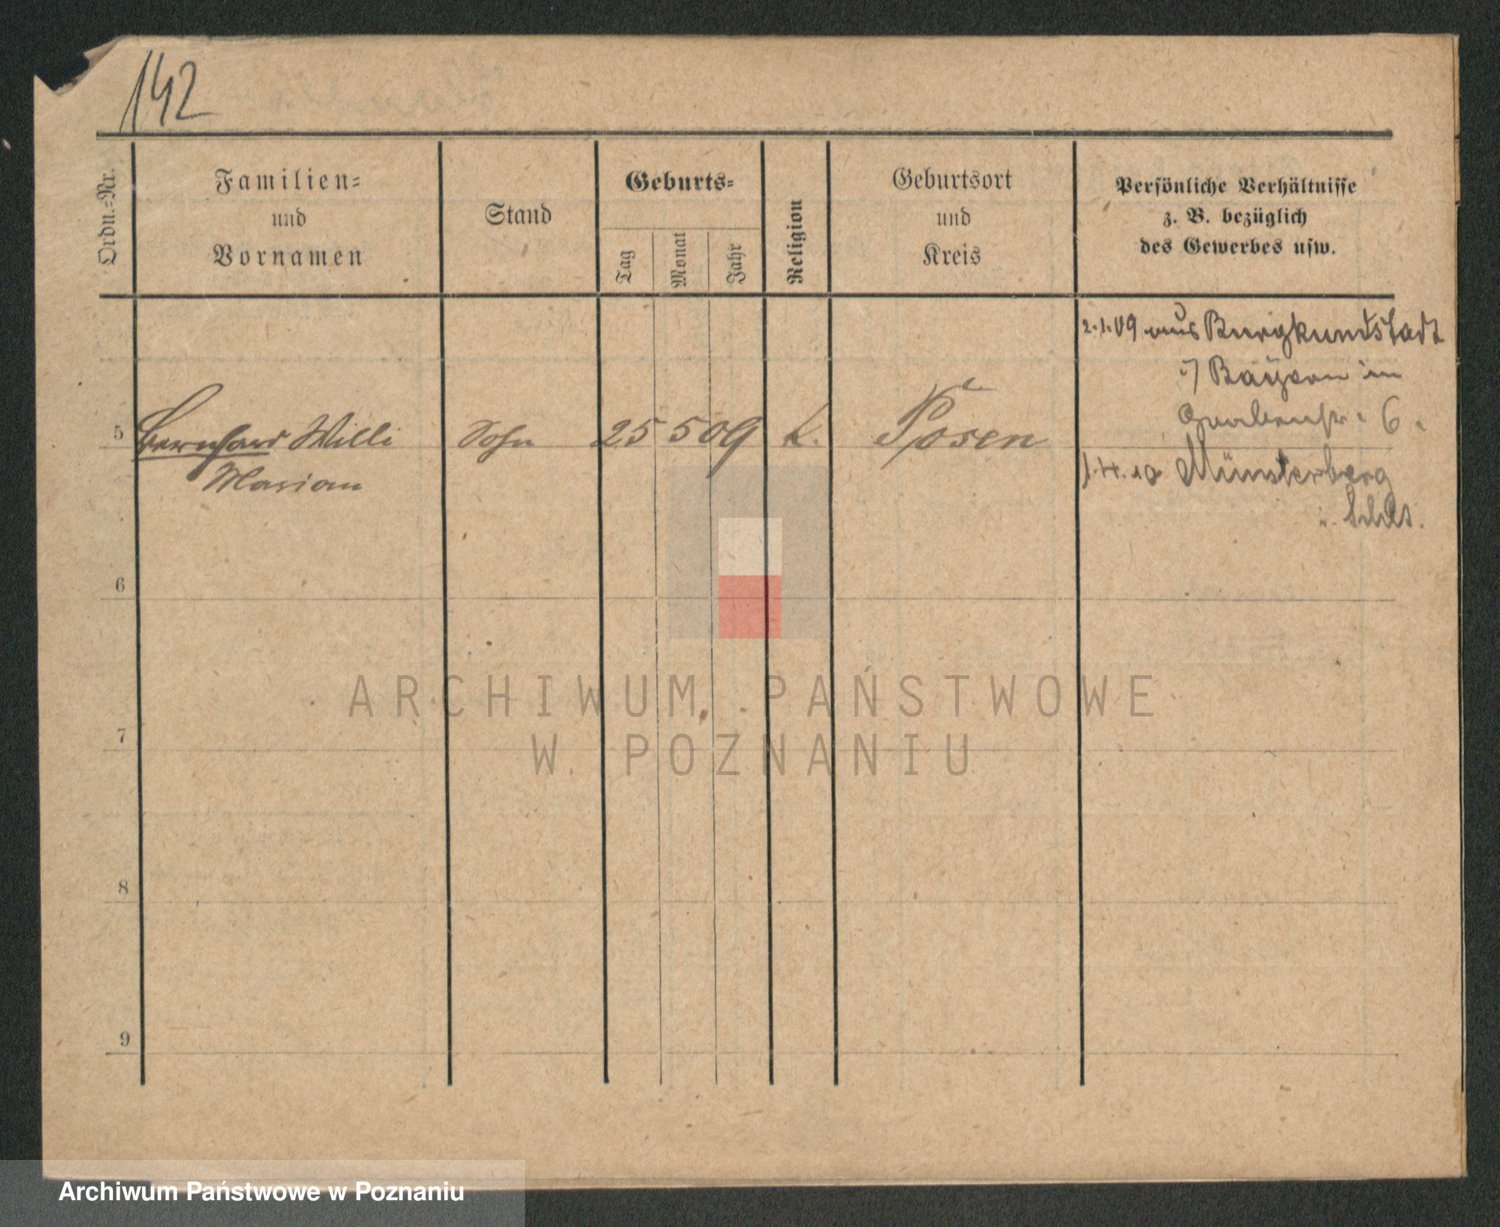 142
Ordn.-Nr.
Familien-
und
Vornamen
Stand
Geburts-
Tag
Monat
Jahr
Religion
Geburtsort
und
Kreis
Persönliche Verhältnisse
z. B. bezüglich
des Gewerbes usw.
2.1.09 aus Burgkundstadt
i/ Bayern in
6.
5 Bernhard Willi Sohn 25 5 09 k. Posen
Marian
Münsterberg
i. Schles.
6
7
8
9
ARCHIWUM PAŃSTWOWE
W POZNANIU
Archiwum Państwowe w Poznaniu